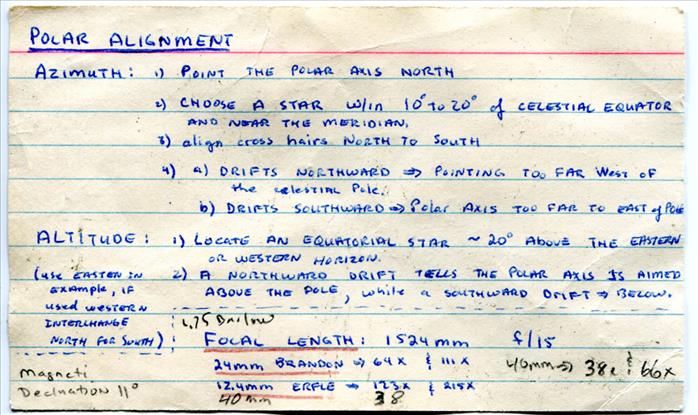 POLAR ALIGNMENT
AZIMUTH: 1) POINT THE POLAR AXIS NORTH
2) CHOOSE A STAR W/IN 10° TO 20° of CELESTIAL EQUATOR
AND NEAR THE MERIDIAN.
3) align cross hairs NORTH TO SOUTH
4) a) DRIFTS NORTHWARD ⇒ POINTING TOO FAR West OF
the celestial Pole.
b) DRIFTS SOUTHWARD ⇒ Polar AXIS TOO FAR TO EAST of POLE
ALTITUDE: 1) LOCATE AN EQUATORIAL STAR ~ 20° ABOVE THE EASTERN
OR WESTERN HORIZON.
(use EASTEN IN 2) A NORTHWARD DRIFT TELLS THE POLAR AXIS IS AIMED
EXAMPLE, IF ABOVE THE POLE, while a SOUTHWARD DRIFT ⇒ BELOW.
used WESTERN
INTERCHANGE
NORTH FOR SOUTH)
1.75 Barlow
FOCAL LENGTH: 1524mm f/15
24mm BRANDON ⇒ 64X & 111X 40mm ⇒ & 66x
12.4mm ERFLE ⇒ 123X & 215X
40mm 38
Magneti
Declnation 11°